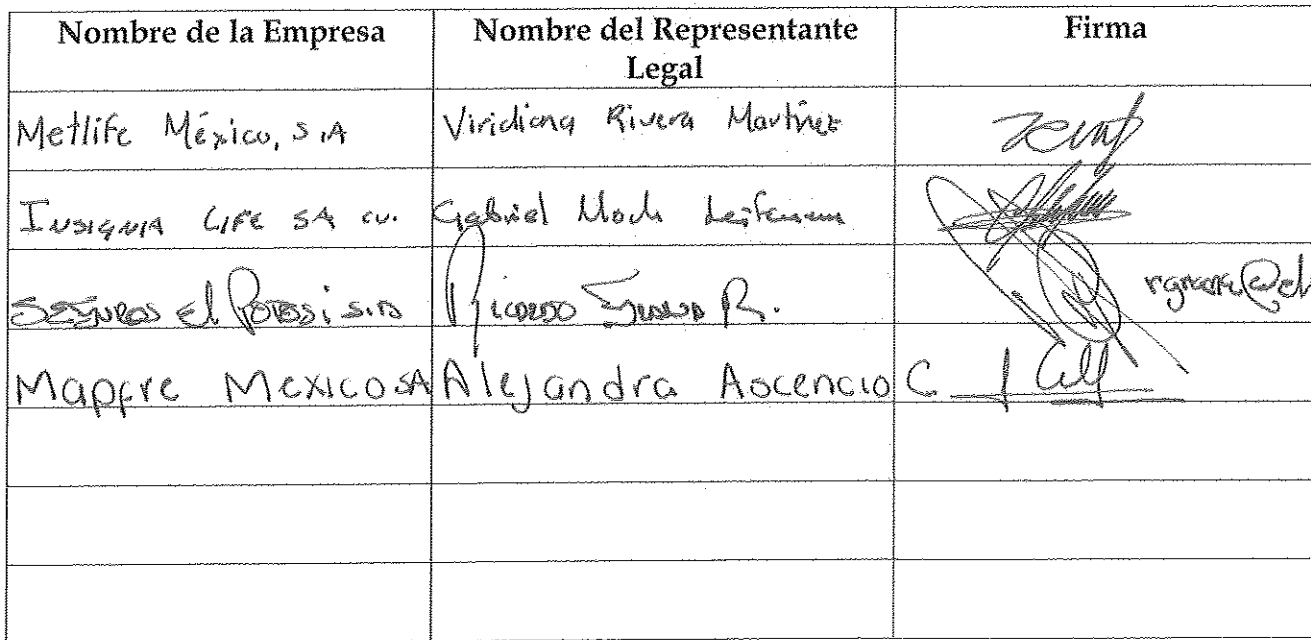 Nombre de la Empresa Nombre del Representante Legal Firma
Metlife México, S.A Viridiana Rivera Martínez
INSIGNIA LIFE SA CV. Gabriel
SEGUROS El Potosi S.A Ricardo R.
Mapfre Mexico SA Alejandra Ascencio C.